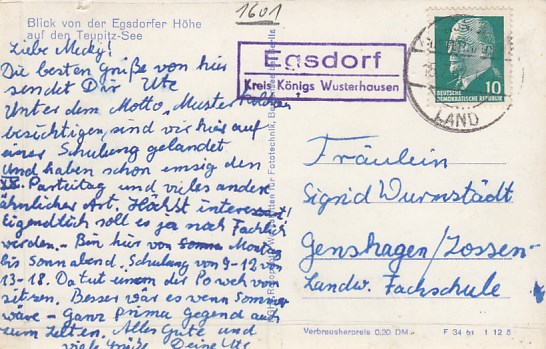 1601
Blick von der Egsdorfer Höhe
auf den Teupitz-See
Egsdorf
Kreis Königs Wusterhausen
DEUTSCHE
DEMOKRATISCHE REPUBLIK
10
LAND
Liebe Micky!
Die besten Grüße von hier
sendet Dir Ute
Unter dem Motto „Muster
besichtigen, sind wir hier auf
einer Schulung gelandet
Und haben schon emsig den
Parteitag und vieles andere
ähnlicher Art. Höchst interessant!
Eigendlich soll es ja noch Fachlich
werden. - Bin hier von Montag
bis Sonnabend. Schulung von 9-12 von
13-18. Da tut einem der Po weh vom
sitzen. Besser wär es wenn Sommer
wäre - Ganz Prima Gegend auch
zum Zelten. Alles Gute und
viele Grüße Deine Ute
Fräulein
Sigrid Wurmstädt
Genshagen/Zossen
Landw. Fachschule
Verbraucherpreis 0,20 DM
F 34 61 1 12 5